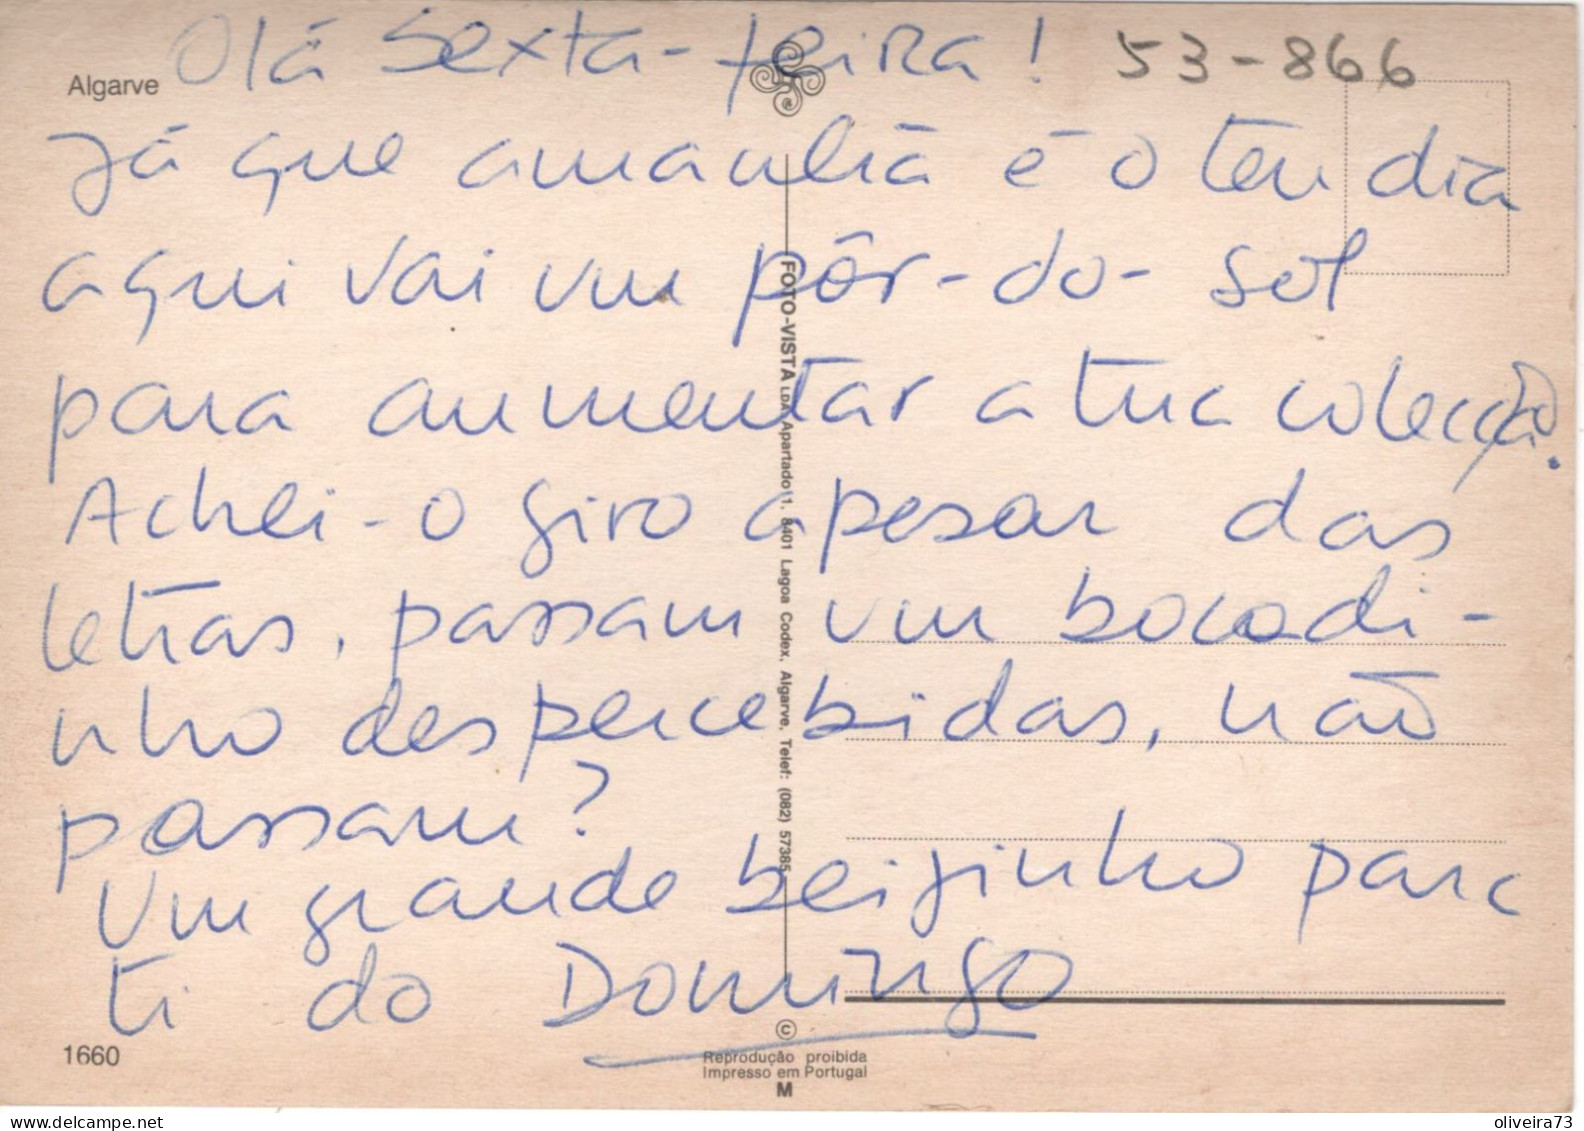 Algarve
Olá Sexta-feira! 53-866
Já que amanhã é o teu dia
aqui vai um pôr-do-sol
para aumentar a tua colecção.
Achei-o giro apesar das
letras, passam um bocadi-
nho despercebidas, não
passam?
Um grande beijinho para
ti do Domingo
FOTO-VISTA LDA Apartado 1. 8401 Lagoa Codex, Algarve, Telef: (082) 57385
1660
©
Reprodução proibida
Impresso em Portugal
M
delcampe.net
oliveira73